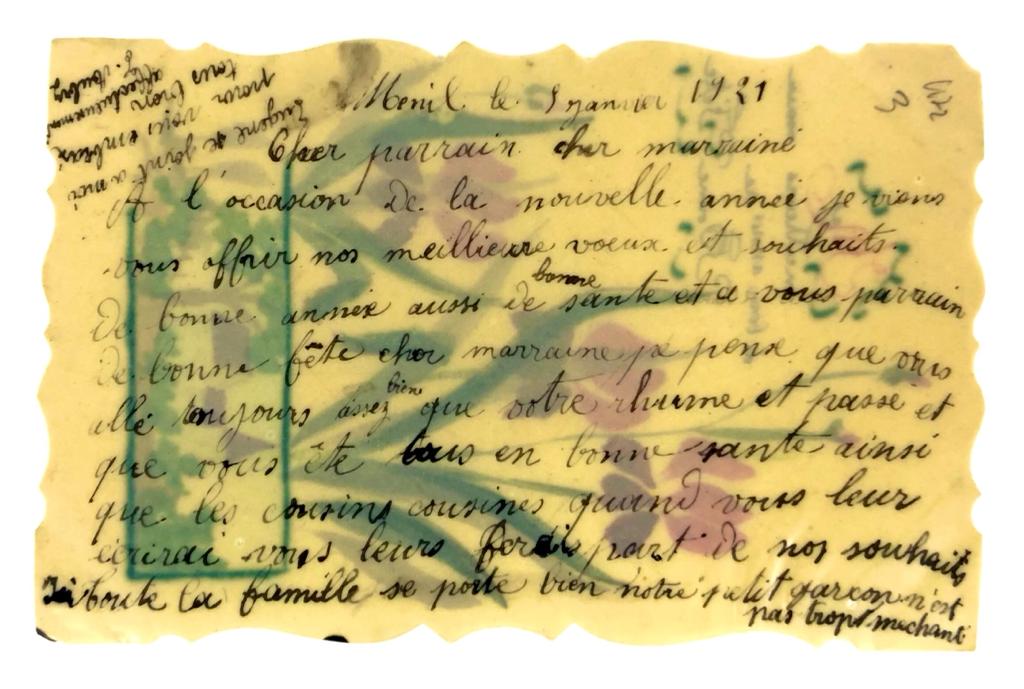 Menil le 5 janvier 1921
Cher parrain cher marraine
A l'occasion de la nouvelle année je viens
vous offrir nos meillieure voeux et souhaits
de bonne année aussi de bonne sante et a vous parrain
de bonne fête cher marraine je pense que vous
allé toujours assez bien que votre rhume et passe et
que vous ête tous en bonne sante ainsi
que les cousins cousines quand vous leur
écrirai vous leurs ferais part de nos souhaits
Ici toute la famille se porte bien notre petit garçon n'est
pas trop mechant
Eugene se joint a moi
pour vous embrasse
tous bien
affectueusement